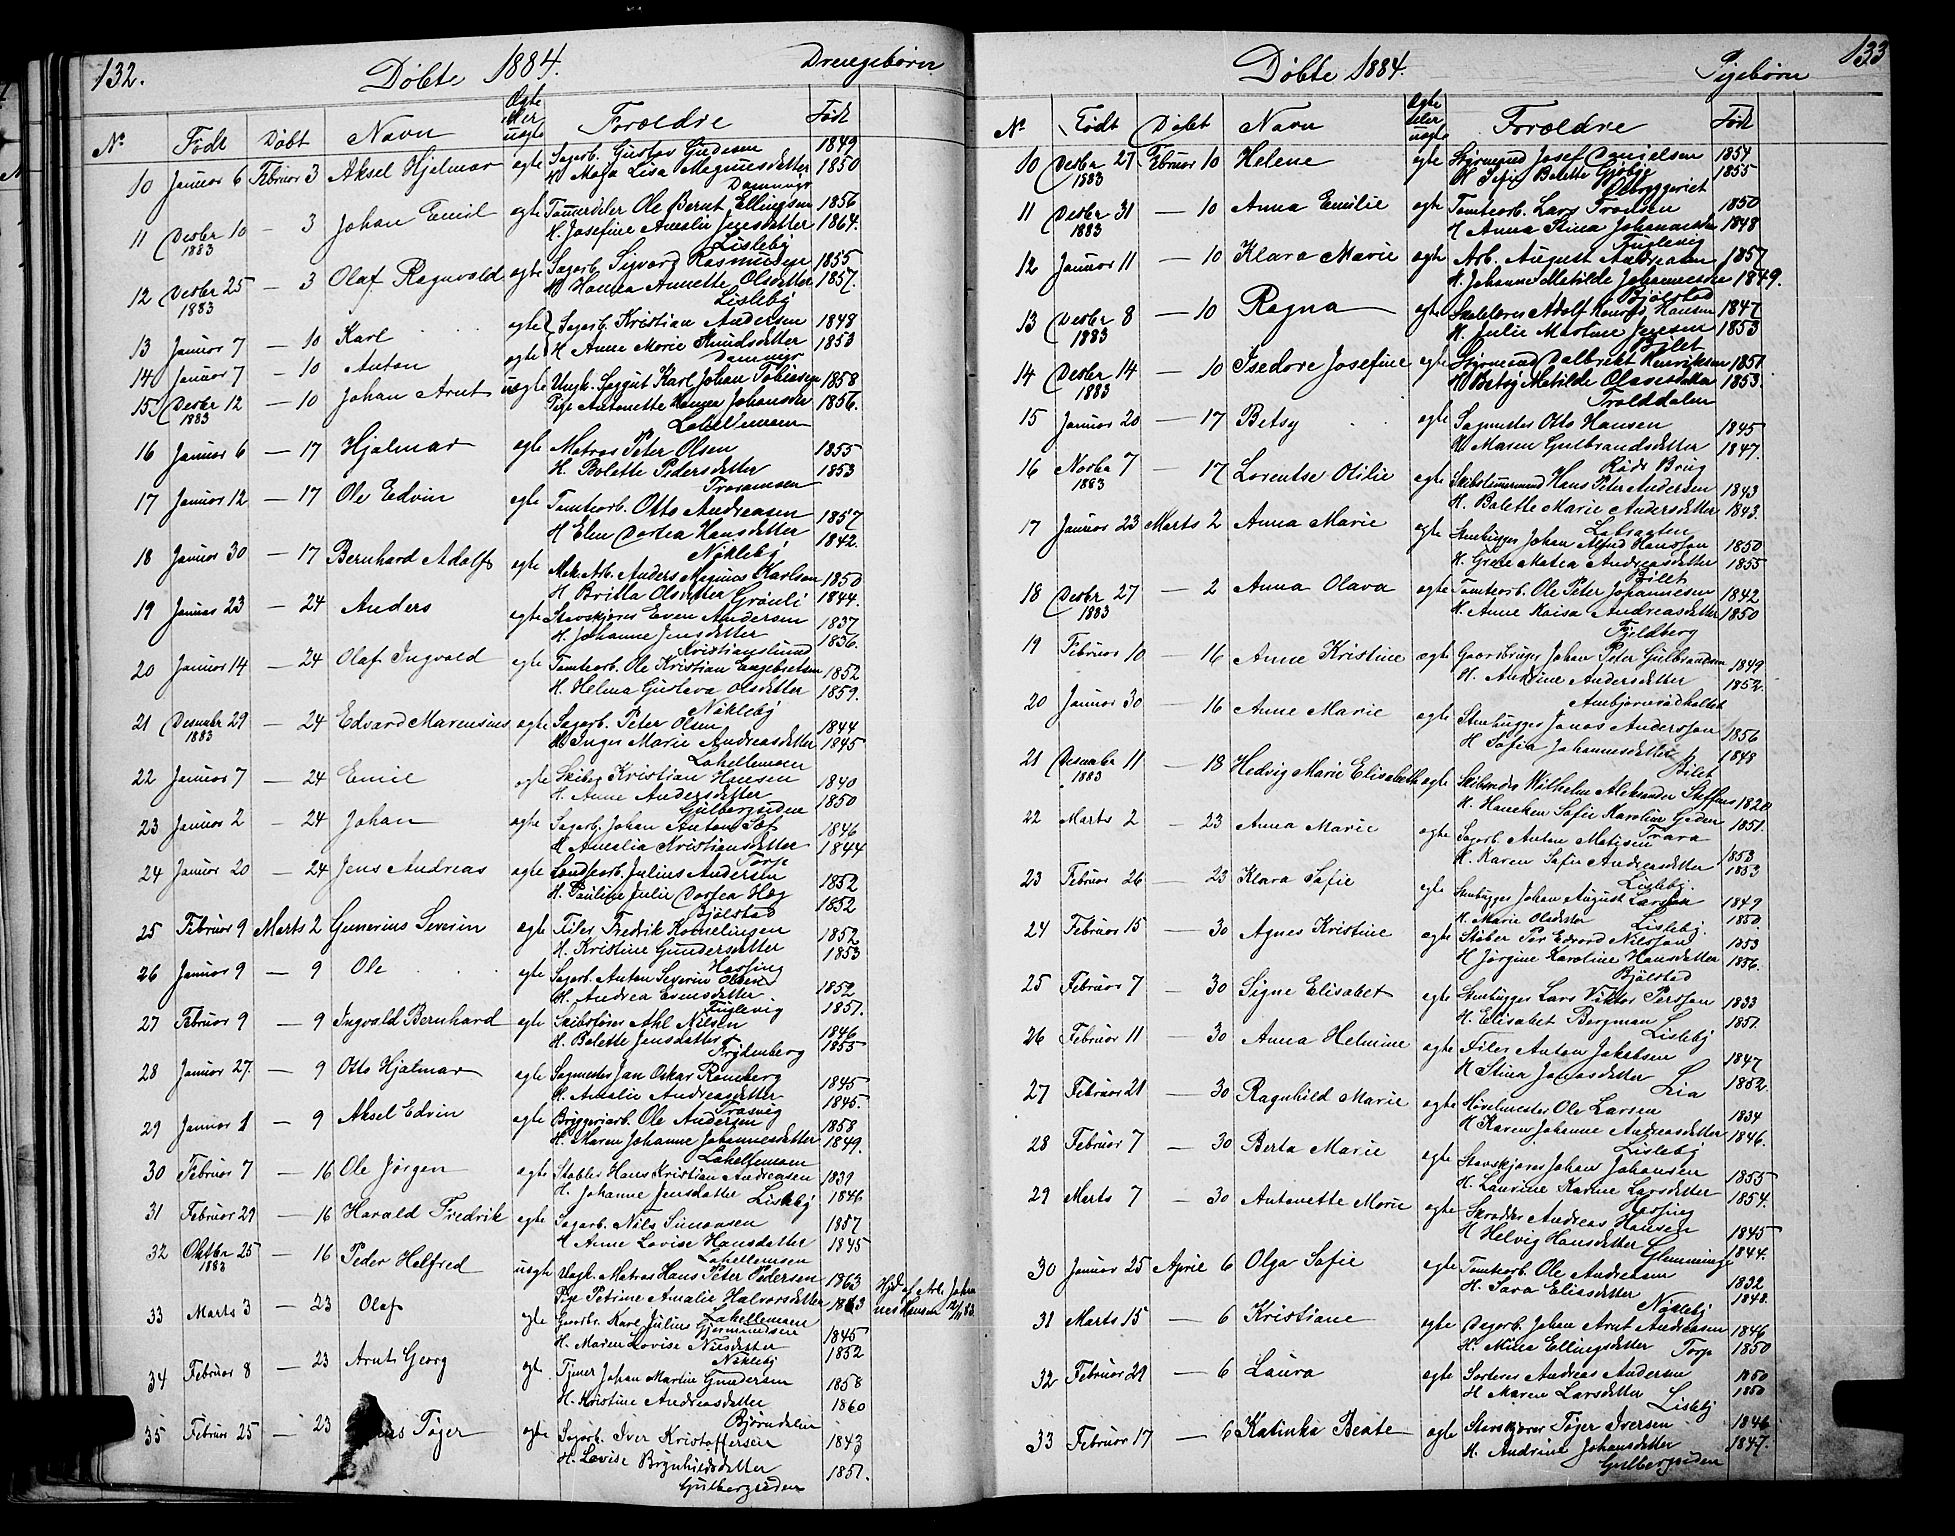 132. Døbte 1884. Drengebørn
No Født Døbt Navn Ægte eller uægte Forældre Født
10 Januar 6 Februar 3 Aksel Hjalmar ægte Sagarb. Gustav Gudesen 1849
H. Maja Lisa Magnusdatter 1850
Damnings
11 Desbr 10 1883 — 3 Johan Emil ægte Tømmerdeler Ole Bernt Ellingsen 1856
H. Josefine Amalie Jensdatter 1864.
Lisleby
12 Desbr 25 1883 — 3 Olaf Ragnvald ægte Sagarb. Sigvard Rasmussen 1855
H. Hanna Annette Olsdatter 1857.
Lisleby
13 Januar 7 — 10 Karl ægte Sagarb. Kristian Andersen 1848
14 Januar 7 — 10 Anton ægte H. Anne Marie Knudsdatter 1853
Damnings
15 Desbr 12 1883 — 10 Johan Arnt uægte Ungk. Saggut Karl Johan Tobiasen 1858
Pige Antonette Hansea Johansdr 1856.
Lahellemoen
16 Januar 6 — 17 Hjalmar ægte Matros Peter Olsen 1855
H. Bolette Pedersdatter 1853
Traramoen
17 Januar 12 — 17 Ole Edvin ægte Tomtearb. Otto Andreasen 1857
H Elen Dortea Hansdatter 1842.
Nøkleby
18 Januar 30 — 17 Bernhard Adolf ægte Mek. Arb. Anders Magnus Karlson 1850
H Britta Olsdatter Grønli 1844.
19 Januar 23 — 24 Anders ægte Stavskjører Even Andersen 1837
H. Johanne Jensdatter 1836.
Kristianslund
20 Januar 14 — 24 Olaf Ingvald ægte Tomtearb. Ole Kristian Engebretsen 1852
H. Helma Gustava Olsdatter 1859.
Nøkleby
21 Desember 29 1883 — 24 Edvard Marensius ægte Sagarb. Peter Olsen 1844
H. Inger Marie Andreasdatter 1845
Lahellemoen
22 Januar 7 — 24 Emil ægte Skibsg Kristian Hansen 1840
H. Anne Andersdatter 1850
Gulbergsiden
23 Januar 2 — 24 Johan ægte Sagarb. Johan Anton Sæf 1846
H Amalia Kristiansdatter 1844
Torp
24 Januar 20 — 24 Jens Andreas ægte Landtarb. Julius Andersen 1852
H. Pauline Julie Dortea Høg 1852
Bjølstad
25 Februar 9 Marts 2 Gunerius Severin ægte Filer Fredrik Korneliussen 1852
H. Kristine Gundersdatter 1853
Hassing
26 Januar 9 — 9 Ole ægte Sagarb. Anton Severin Olsen 1852
H. Andrea Evensdatter. 1851.
Fuglevig
27 Februar 9 — 9 Ingvald Bernhard ægte Skibsfører Ahl Nilsen 1846
H. Bolette Jensdatter 1855
Frydenberg
28 Januar 27. — 9 Otto Hjalmar ægte Sagmester Jan Oskar Ramberg 1845
H. Amalie Andreasdatter 1845.
Trosvig
29 Januar 1 — 9 Aksel Edvin ægte Bryggeriarb. Ole Andersen 1858
H. Maren Johanne Johannesdatter 1849.
Lahellemoen
30 Februar 7 — 16 Ole Jørgen ægte Stabler Hans Kristian Andreasen 1839
H. Johanne Jensdatter Lisleby 1846
31 Februar 29 — 16 Harald Fredrik ægte Sagarb. Nils Simonsen 1857
H Anne Lovise Hansdatter 1845
Lahellemoen
32 Oktbr 25 1883 — 16 Peder Helfred uægte Ungk. Matros Hans Peter Pedersen 1863
Pige Petrine Amalie Halvorsdatter 1863 Hjd af Arb. Johannes Hansen 12/11 83.
Lahellemoen
33 Marts 3 — 23 Olaf ægte Gaardbr. Karl Julius Gjermundsen 1845
H. Maren Lovise Nilsdatter 1852
Nøkleby
34 Februar 8 — 23 Arnt Georg ægte Tjener Johan Martin Gundersen 1858
H. Kristine Andreasdatter 1860
Bjørndalen
35 Februar 25 — 23 Tøger ægte Sagarb. Iver Kristoffersen 1843
H. Lovise Brynhildsdatter 1851.
Gulbergsiden
Døbte 1884. Pigebørn 133
No Født Døbt Navn Ægte eller uægte Forældre Født
10 Desbr 27 1883 Februar 10 Helene ægte Styrmand Josef Danielsen 1854
H Sofie Bolette Gjøbye 1855
Ølbryggeriet
11 Desbr 31 1883 — 10 Anna Emilie ægte Tomtearb. Lars Fransen 1850
H Anna Stina Johannesdr 1848
Fuglevig
12 Januar 11 — 10 Klara Marie ægte Arb. August Andreasen 1857
H. Johanne Matilde Johannesdr 1849.
Bjølstad
13 Desbr 8 1883 — 10 Ragna ægte Skolelærer Adolf Konrad Hansen 1847
H. Julie Martine Jensen 1853
Bilet
14 Desbr 14 1883 — 10 Isedore Josefine ægte Styrmand Dalbrekt Henriksen 1851
H Betsy Matilde Olavesdatter 1853.
Tralddalen
15 Januar 20 — 17 Betsy ægte Sagmester Otto Hansen 1845
H Maren Gulbrandsdatter 1847.
Røds Brug
16 Novbr 7 1883 — 17 Lorentse Otilie ægte Skibstømmermand Hans Peter Andersen 1843
H. Bolette Marie Andersdatter 1843.
17 Januar 23 Marts 2 Anna Marie ægte Stenhugger Johan Alfred Hansson 1850
H. Grete Matea Andreasdatter 1855
Bilet
18 Desbr 27 1883 — 2 Anna Olava ægte Tomtearb. Ole Peter Johannesen 1842
H. Anne Kaisa Andreasdatter 1850
Fjeldberg
19 Februar 10 — 16 Anne Kristine ægte Gaardbruger Johan Peter Gulbrandsen 1849
H. Andrine Andersdatter 1852.
Ambjørnrødhaltet
20 Januar 30 — 16 Anne Marie ægte Stenhugger Jonas Andersson 1856
H Sofia Johannesdatter 1848
Bilet
21 Desember 11 1883 — 18 Hedvig Marie Elisabeth ægte Skibsreder Wilhelm Aleksander Steffens 1820
H. Haneken Sofie Karoline Geder 1851.
Trara
22 Marts 2 — 23 Anna Marie ægte Sagarb. Anton Matisen 1853
H. Karen Sofie Andreasdatter 1853
Lisleby.
23 Februar 26 — 23 Klara Sofie ægte Stenhugger Johan August Larsson 1849
H. Marie Olsdatter Lisleby. 1850.
24 Februar 15 — 30 Agnes Kristine ægte Støber Per Edvard Nilsson 1853
H Jørgine Karoline Hansdatter 1856.
Bjølstad
25 Februar 7 — 30 Signe Elisabet ægte Stenhugger Lars Viktor Persson 1833
H. Elisabet Bergman Lisleby 1851.
26 Februar 11 — 30 Anna Helmine ægte Filer Anton Jakobsen 1847
H Stina Jonasdatter Lia 1852.
27 Februar 21 — 30 Ragnhild Marie ægte Høvelmester Ole Larsen 1834
H Karen Johanne Andreasdatter 1846.
Lisleby
28 Februar 7 — 30 Berta Marie ægte Stavskjører Johan Johansen 1855
H. Laurine Karine Larsdatter 1854.
Hassing
29 Marts 7 — 30 Antonette Marie ægte Skredder Andreas Hansen 1845
H Helvig Hansdatter Glemminge 1844.
30 Januar 25 April 6 Olga Sofie ægte Tomtearb. Ole Andreasen 1832
H. Sara Eliasdatter 1848.
Nøkleby
31 Marts 15 — 6 Kristiane ægte Dagarb. Johan Arnt Andreasen 1846
H. Mina Ellingsdatter Torp 1850
32 Februar 29 — 6 Laura ægte Sorterer Andreas Andersen 1850
H Maren Larsdatter Lisleby 1850
33 Februar 17 — 6 Katinka Beate ægte Stavskjører Tøger Iversen 1846
H. Andrine Johansdatter 1847.
Gulbergsiden